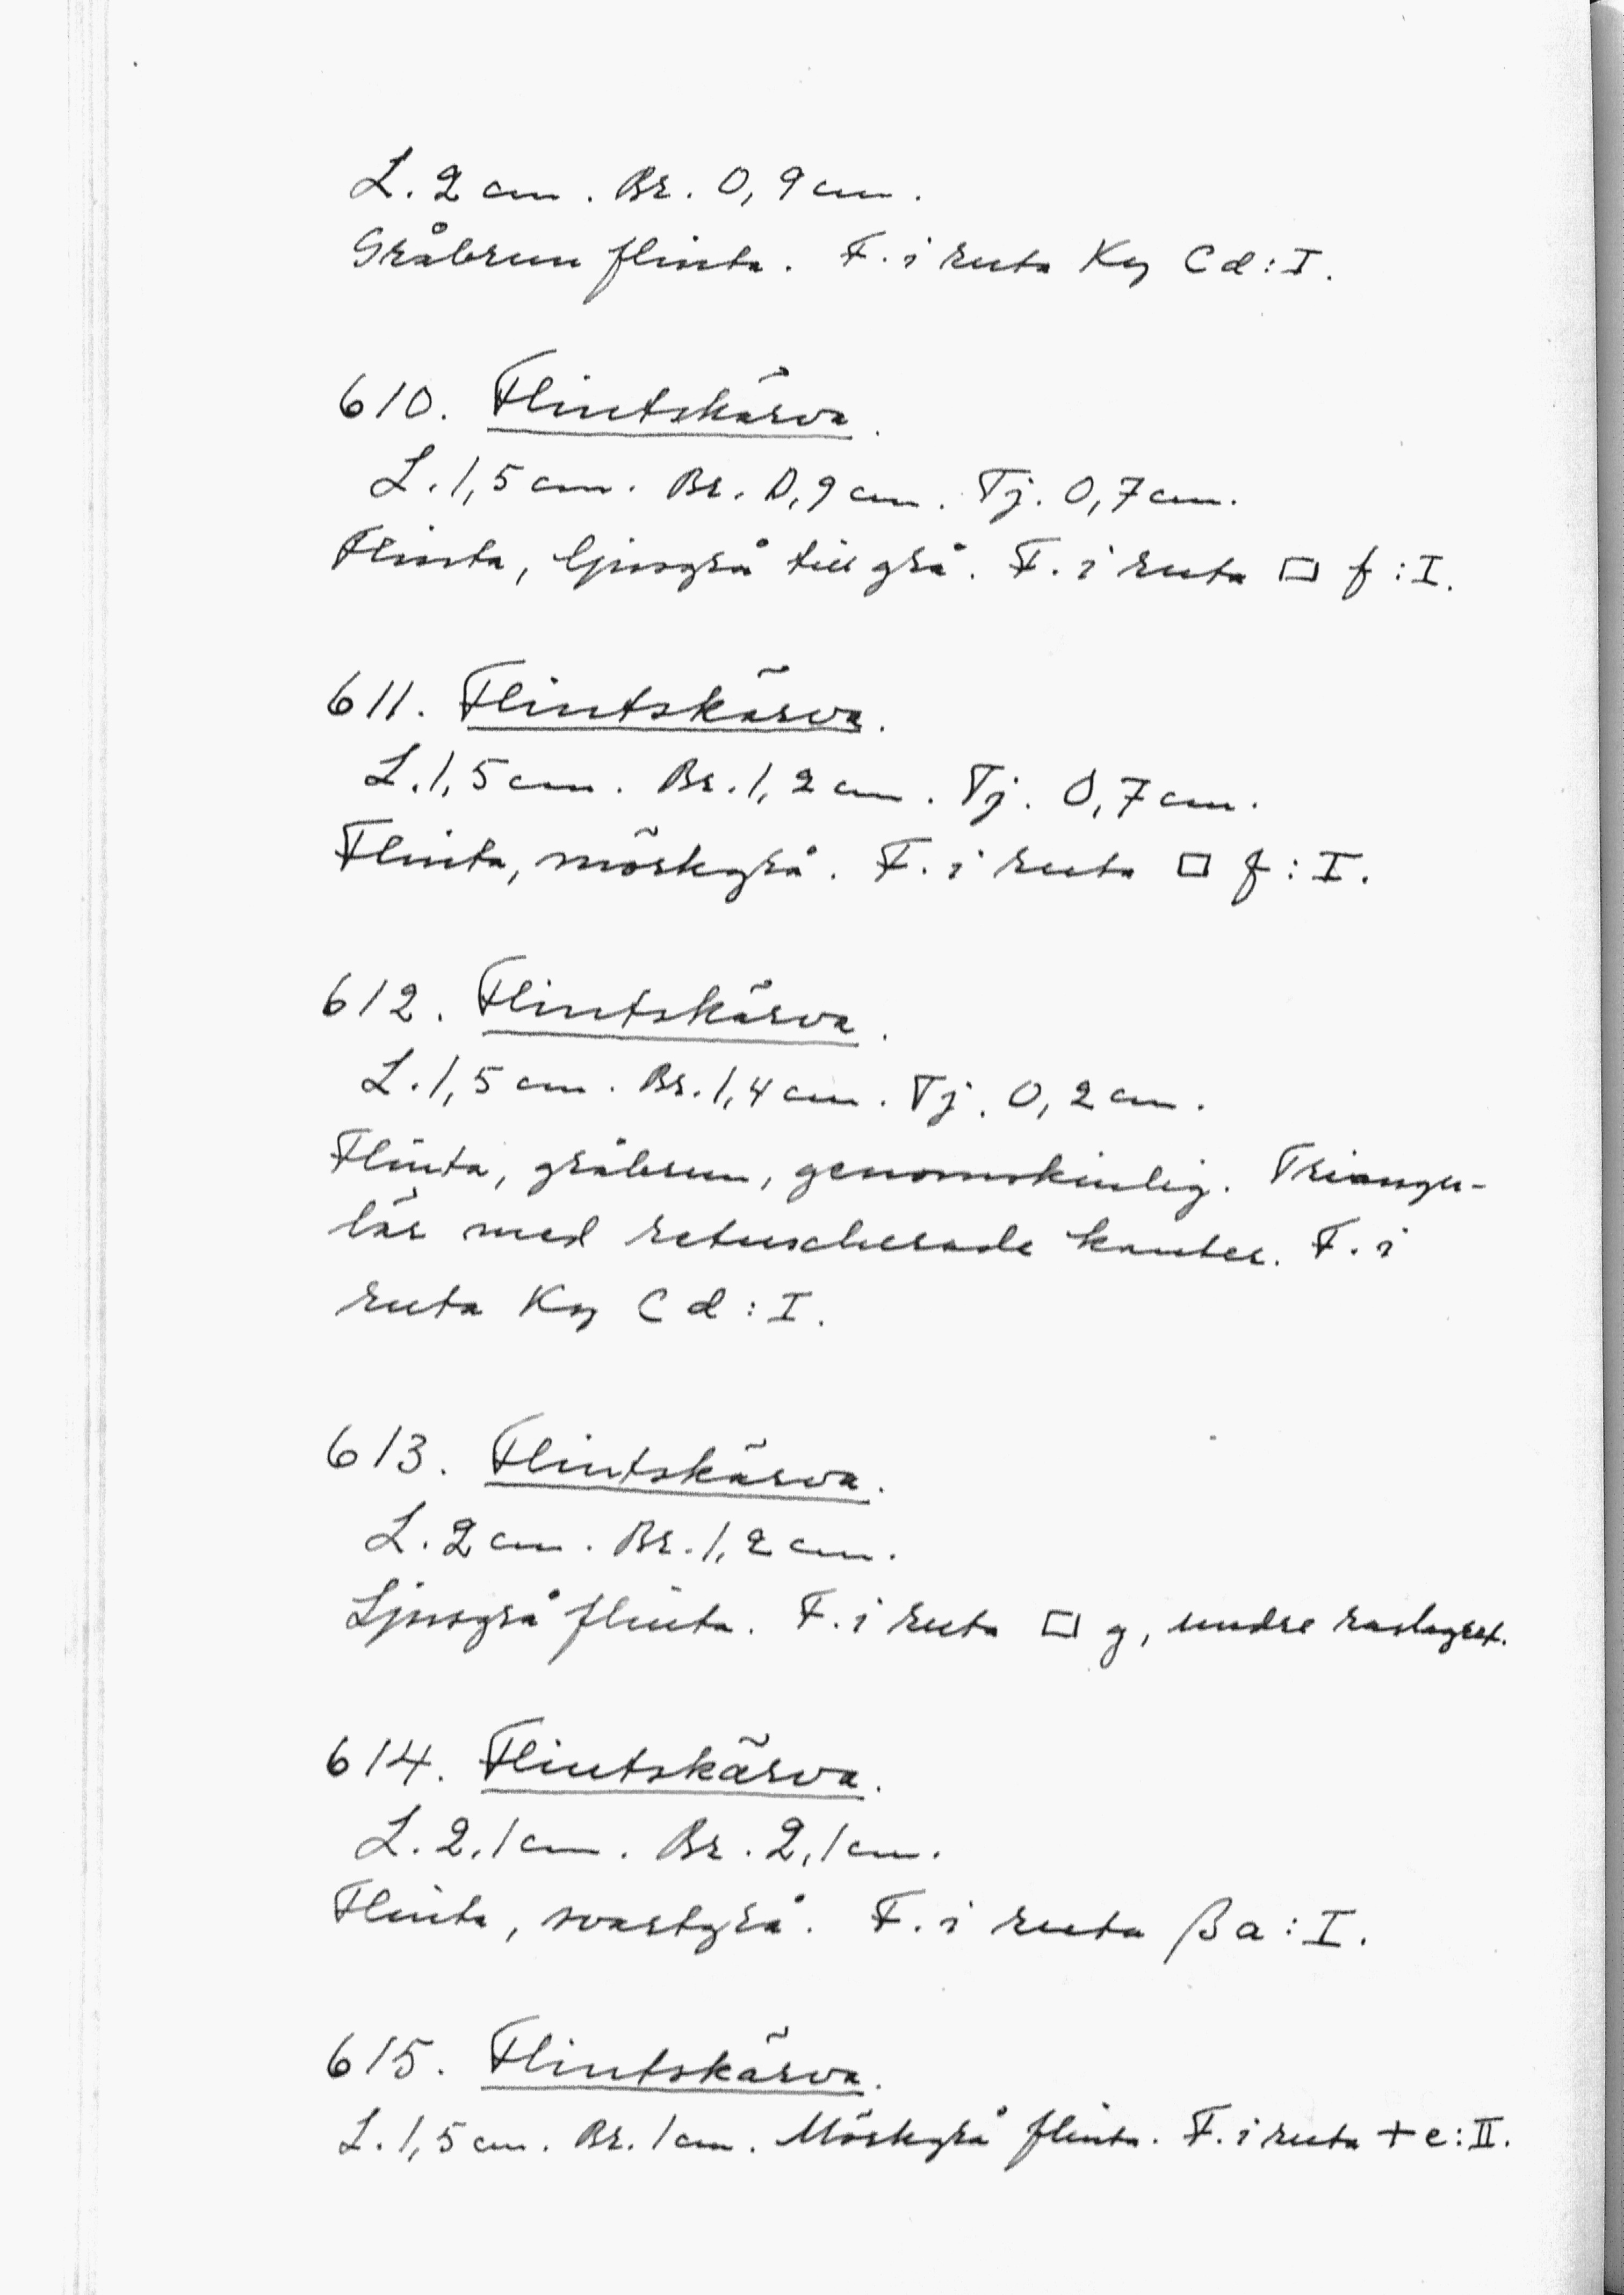 L. 2 cm. Br. 0,9 cm.
Gråbrun flinta. F. i ruta Kg Cd:I.
610. Flintskärva.
L. 1,5 cm. Br. 0,9 cm. Tj. 0,7 cm.
Flinta, ljusgrå till grå. F. i ruta □ f:I.
611. Flintskärva.
L. 1,5 cm. Br. 1,2 cm. Tj. 0,7 cm.
Flinta, mörkgrå. F. i ruta □ f:I.
612. Flintskärva.
L. 1,5 cm. Br. 1,4 cm. Tj. 0,2 cm.
Flinta, gråbrun, genomskinlig. Triangu-
lär med retuscherade kanter. F. i
ruta Kg Cd:I.
613. Flintskärva.
L. 2 cm. Br. 1,2 cm.
Ljusgrå flinta. F. i ruta □ g, undre raslagret.
614. Flintskärva.
L. 2,1 cm. Br. 2,1 cm.
Flinta, svartgrå. F. i ruta β a:I.
615. Flintskärva.
L. 1,5 cm. Br. 1 cm. Mörkgrå flinta. F. i ruta + e:II.